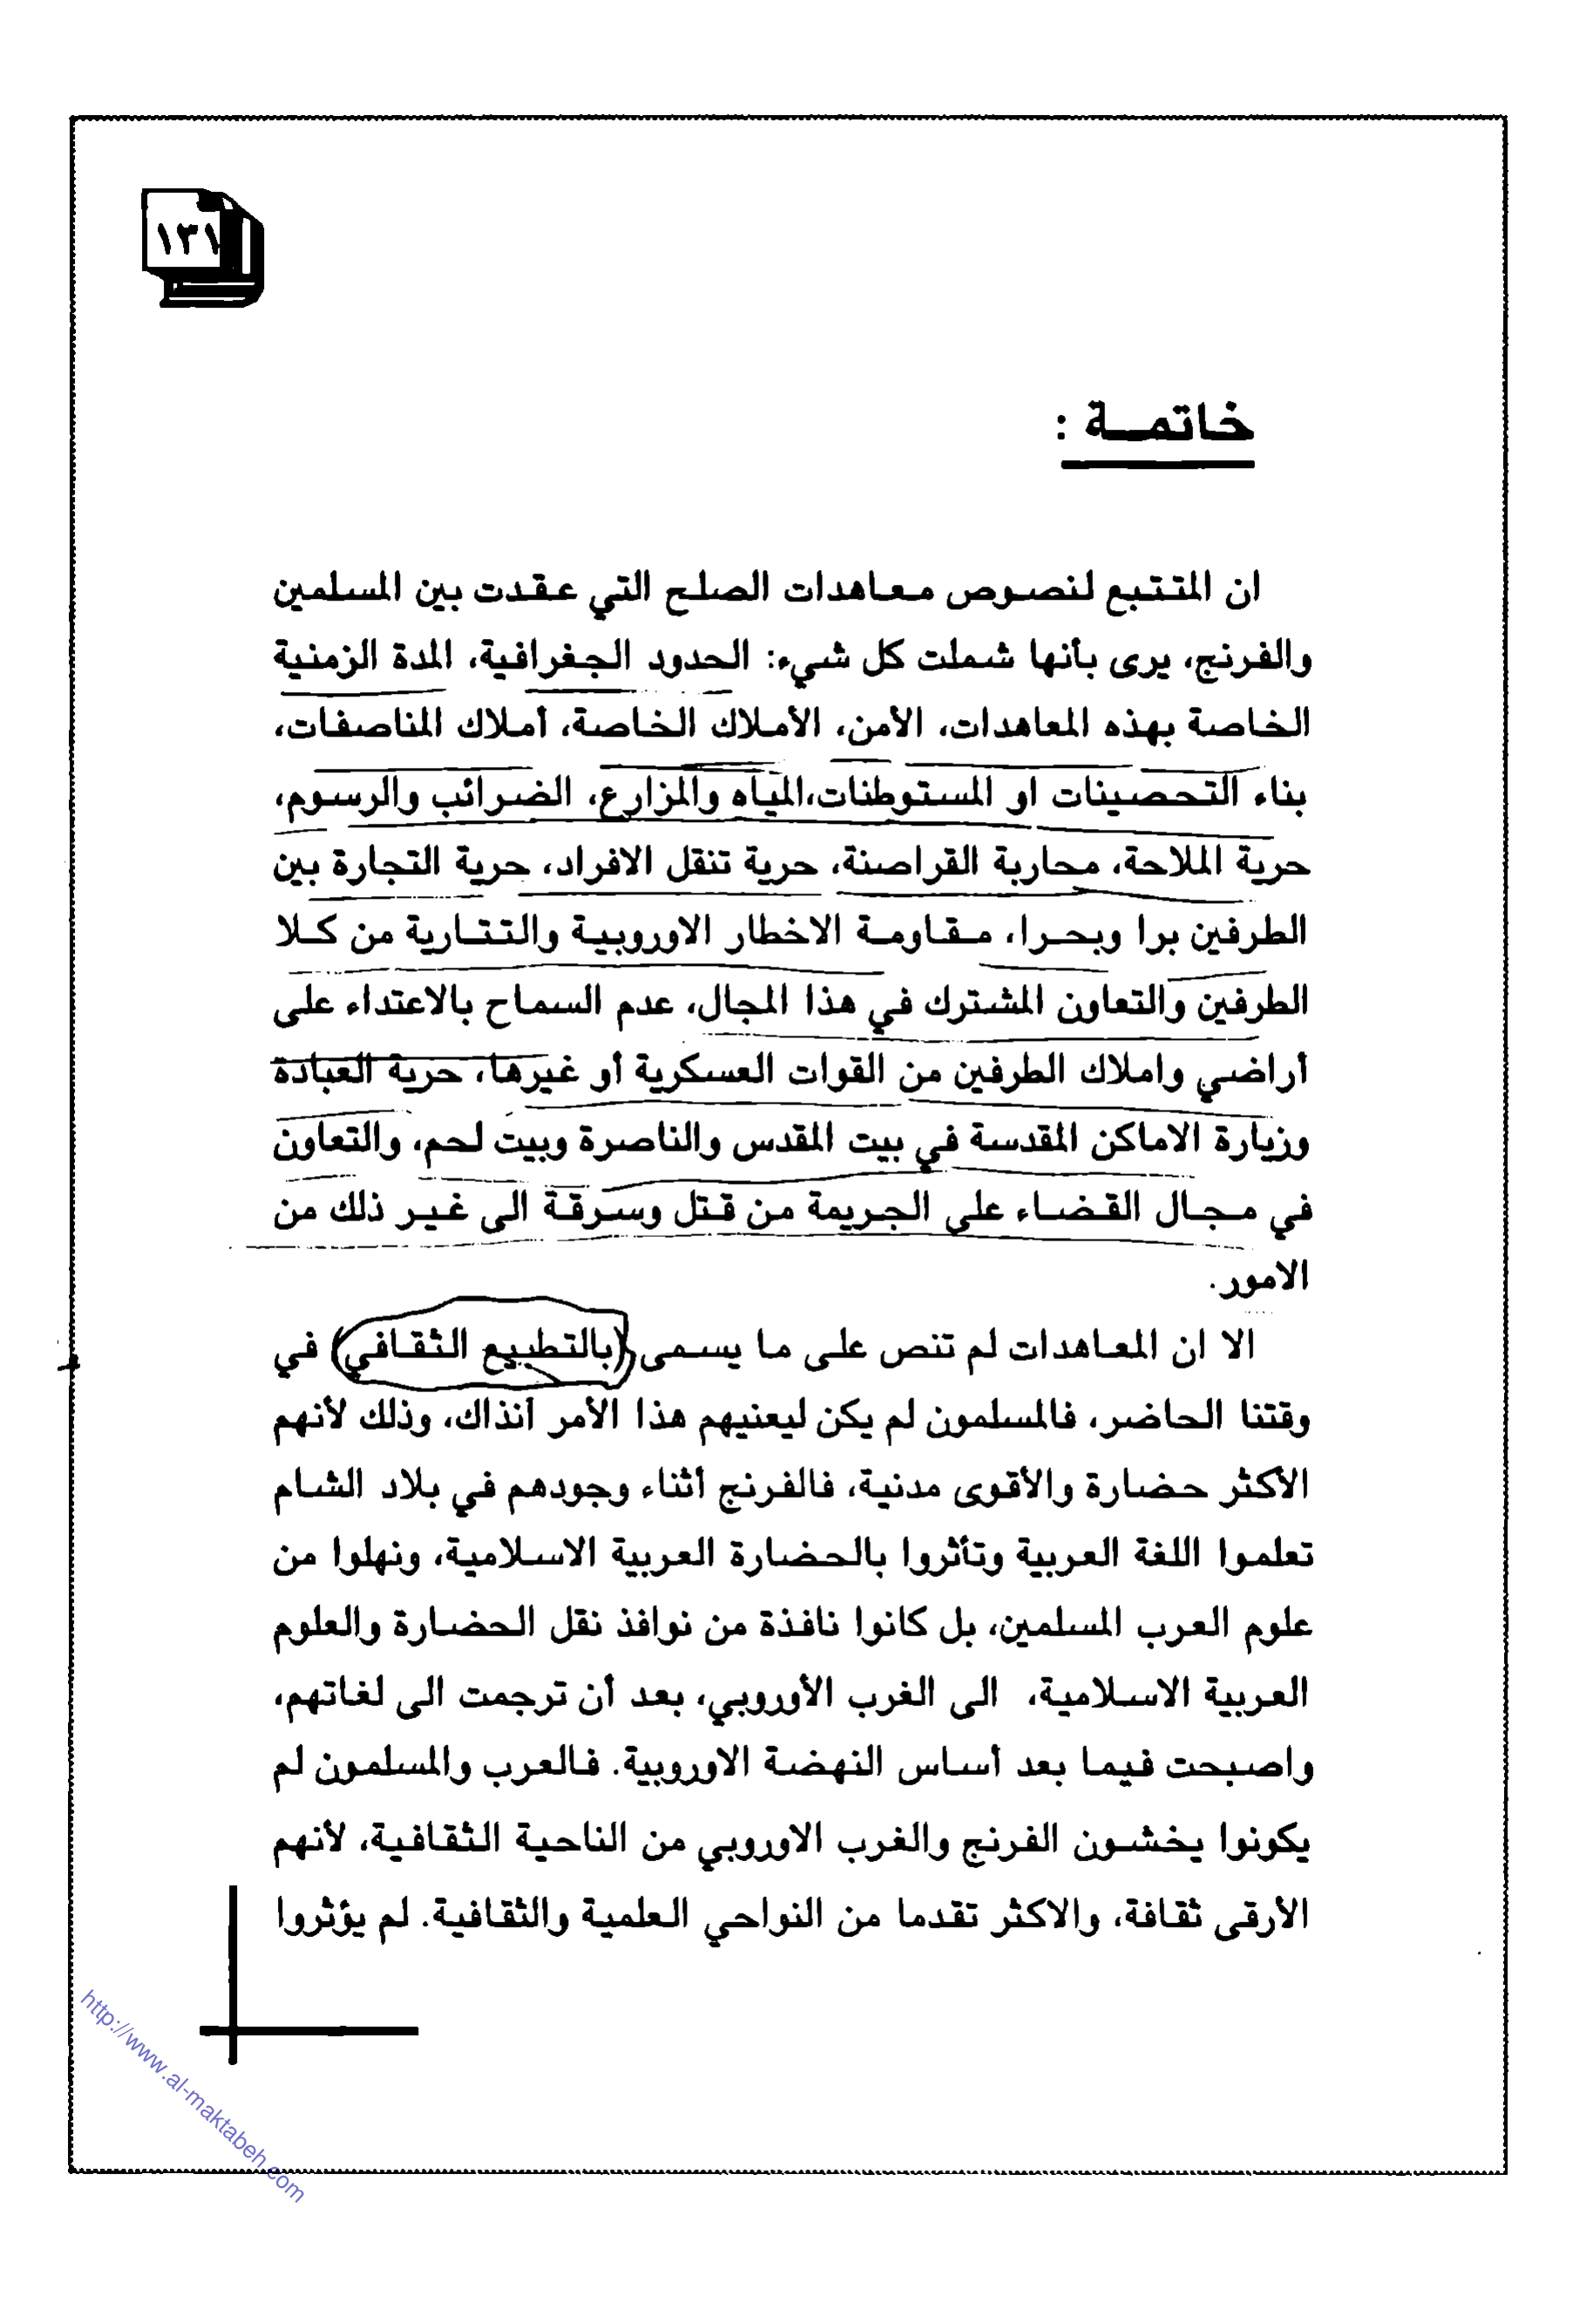 ١٣١
خاتمـــة :
ان المتتبع لنصوص معاهدات الصلح التي عقدت بين المسلمين
والفرنج، يرى بأنها شملت كل شيء: الحدود الجغرافية، المدة الزمنية
الخاصة بهذه المعاهدات، الأمن، الأملاك الخاصة، أملاك المناصفات،
بناء التحصينات او المستوطنات،المياه والمزارع، الضرائب والرسوم،
حرية الملاحة، محاربة القراصنة، حرية تنقل الافراد، حرية التجارة بين
الطرفين برا وبحرا، مقاومة الاخطار الاوروبية والتتارية من كلا
الطرفين والتعاون المشترك في هذا المجال، عدم السماح بالاعتداء على
أراضي واملاك الطرفين من القوات العسكرية أو غيرها، حرية العبادة
وزيارة الاماكن المقدسة في بيت المقدس والناصرة وبيت لحم، والتعاون
في مجال القضاء على الجريمة من قتل وسرقة الى غير ذلك من
الامور.
الا ان المعاهدات لم تنص على ما يسمى (بالتطبيع الثقافي) في
وقتنا الحاضر، فالمسلمون لم يكن ليعنيهم هذا الأمر آنذاك، وذلك لأنهم
الأكثر حضارة والأقوى مدنية، فالفرنج أثناء وجودهم في بلاد الشام
تعلموا اللغة العربية وتأثروا بالحضارة العربية الاسلامية، ونهلوا من
علوم العرب المسلمين، بل كانوا نافذة من نوافذ نقل الحضارة والعلوم
العربية الاسلامية، الى الغرب الأوروبي، بعد أن ترجمت الى لغاتهم،
واصبحت فيما بعد أساس النهضة الاوروبية. فالعرب والمسلمون لم
يكونوا يخشون الفرنج والغرب الاوروبي من الناحية الثقافية، لأنهم
الأرقى ثقافة، والاكثر تقدما من النواحي العلمية والثقافية. لم يؤثروا
http://www.al-maktabeh.com